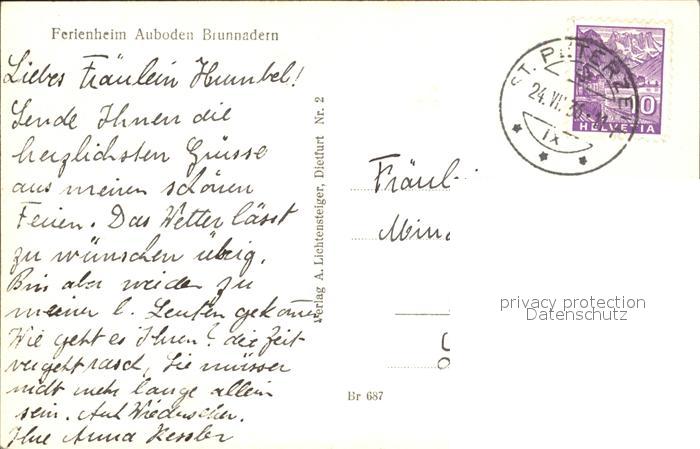 Ferienheim Auboden Brunnadern
Liebes Fräulein Humbel!
Sende Ihnen die
herzlichsten Grüsse
aus meinen schönen
Ferien. Das Wetter lässt
zu wünschen übrig.
Bin aber wieder zu
meiner l. Leuten gekommen
Wie geht es Ihnen? die Zeit
vergeht rasch, Sie müsser
nicht mehr lange allein
sein. Auf Wiedersehen.
Ihre Anna Kessler
Verlag A. Lichtensteiger, Dietfurt Nr. 2
Br 687
ST. PETERZELL
24. VII
IX
10
HELVETIA
Fräul
privacy protection
Datenschutz